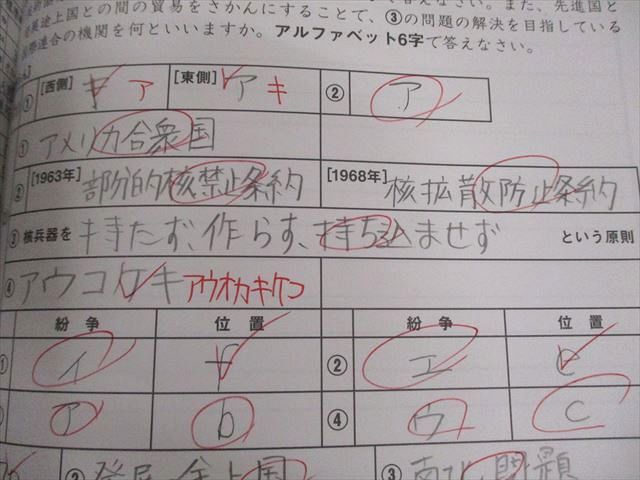 答えなさい。また、先進国と
発展途上国との間の貿易をさかんにすることで、③の問題の解決を目指している
際連合の機関を何といいますか。アルファベット6字で答えなさい。
① [西側] ア [東側] ア キ ② ア
① アメリカ合衆国
② [1963年] 部分的核禁止条約 [1968年] 核拡散防止条約
③ 核兵器を 持たず、作らず、持ち込ませず という原則
④ アウコケキ アウオカキケコ
紛争 位置 紛争 位置
イ ② エ
ア b ④ ウ C
② 発展 上国 ③ 南北問題